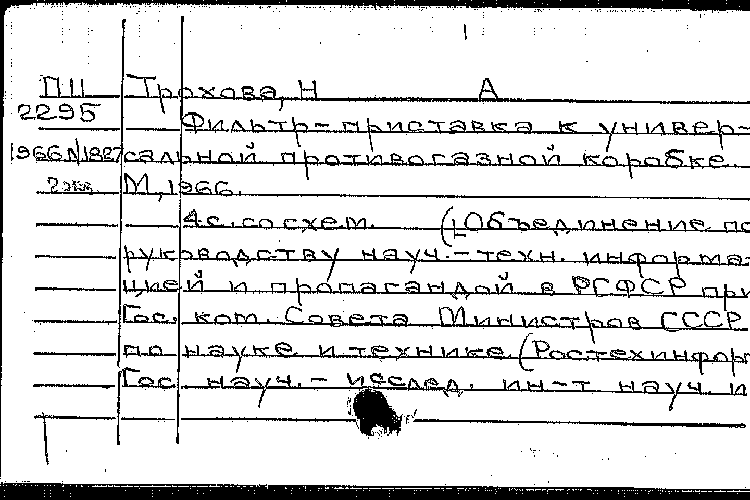 П11 Трохова, Н А
2295 Фильтр-приставка к универ-
1966Л/1887 сальной противогазной коробке.
2 экз М., 1966.
4 с. со схем. (Объединение по
руководству науч.-техн. информа-
цией и пропагандой в РСФСР при
Гос. ком. Совета Министров СССР
по науке и технике (Ростехинформ)
Гос. науч.-исслед. ин-т науч. и